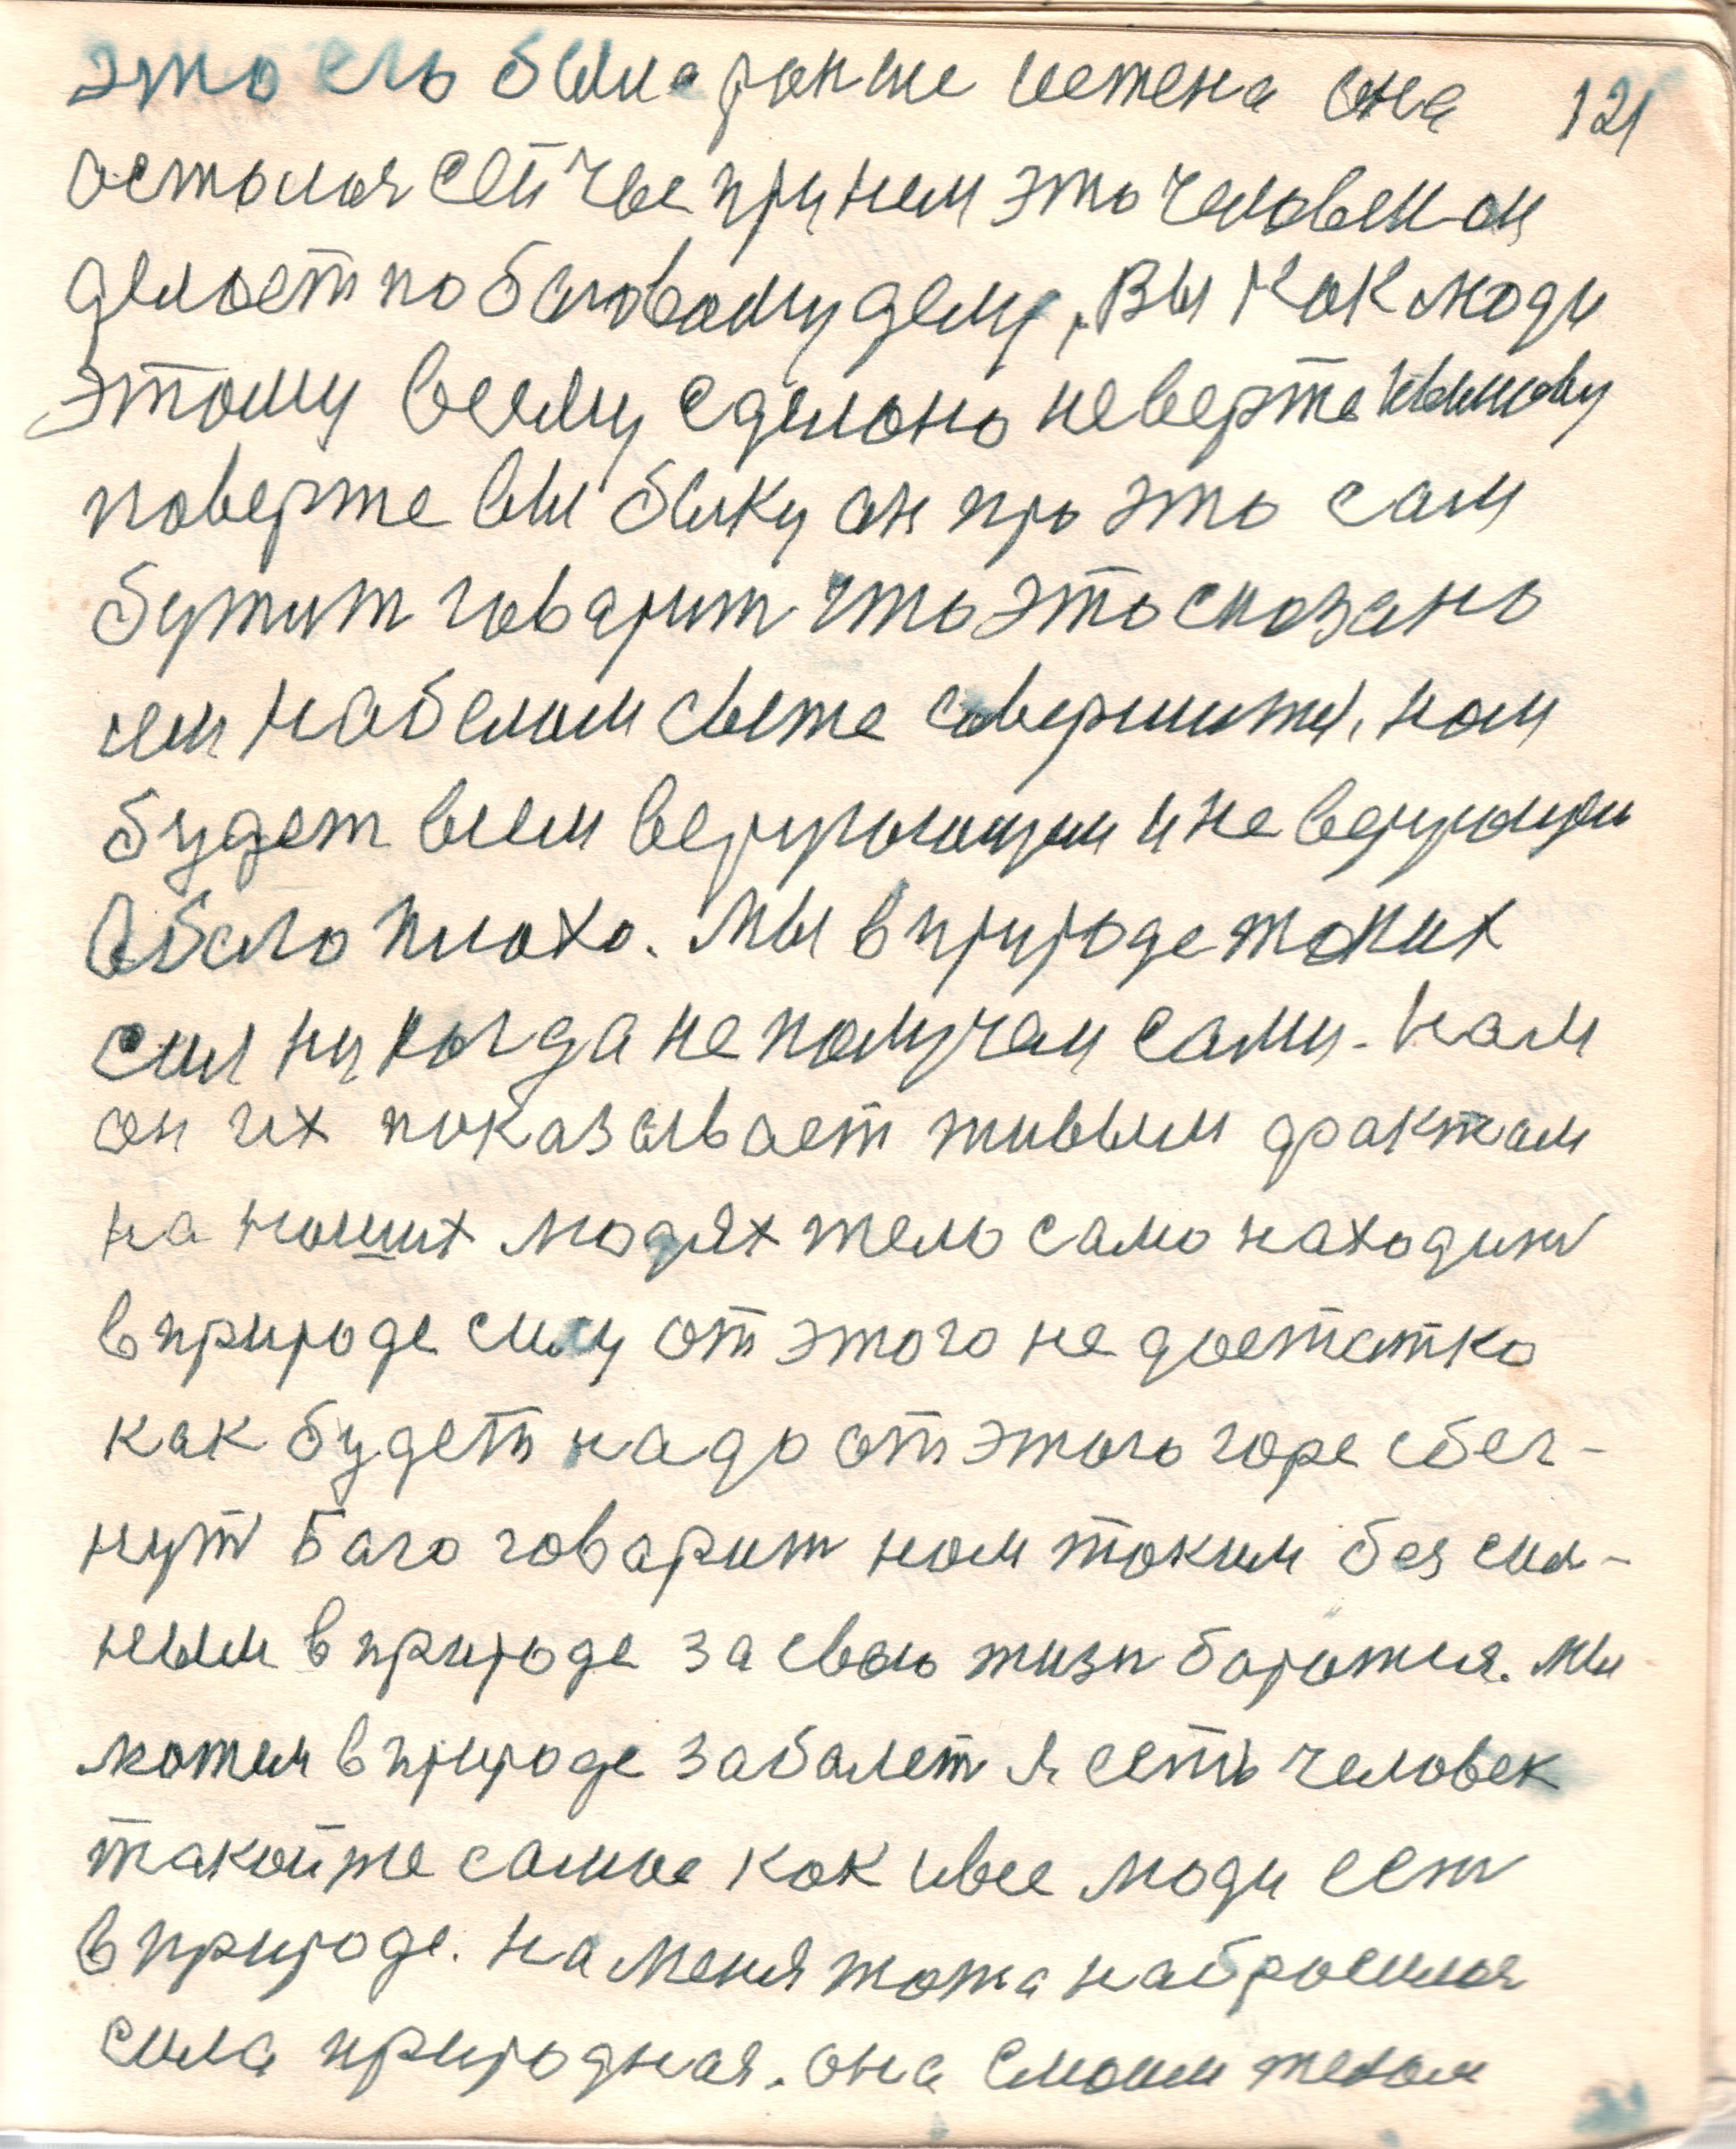 это ель была раньше истена она 121
осталая сейчас при нем это человек он
делает по боговому делу, Вы как люди
этому всему сделано неверте Иванову
поверте вы быку он про это сам
бутит говарит что это сказано
им на белом свете совершити, нам
будет всем верующим и не верующим
было плохо. Мы в природе таких
сил ни когда не получам сами. Нам
он их показывает живым фактам
на наших людях тело само находит
в природе силу от этого не достатка
как будет надо от этого горе сбег-
нут Баго говарит ном таким без сил-
ным в природе за свою жизн боротися. Мы
можем в природе заболет я сеть человек
такой же самое как ивсе люди сеть
в природе. На меня тожа набросилоя
сила природная. она Смоим телом